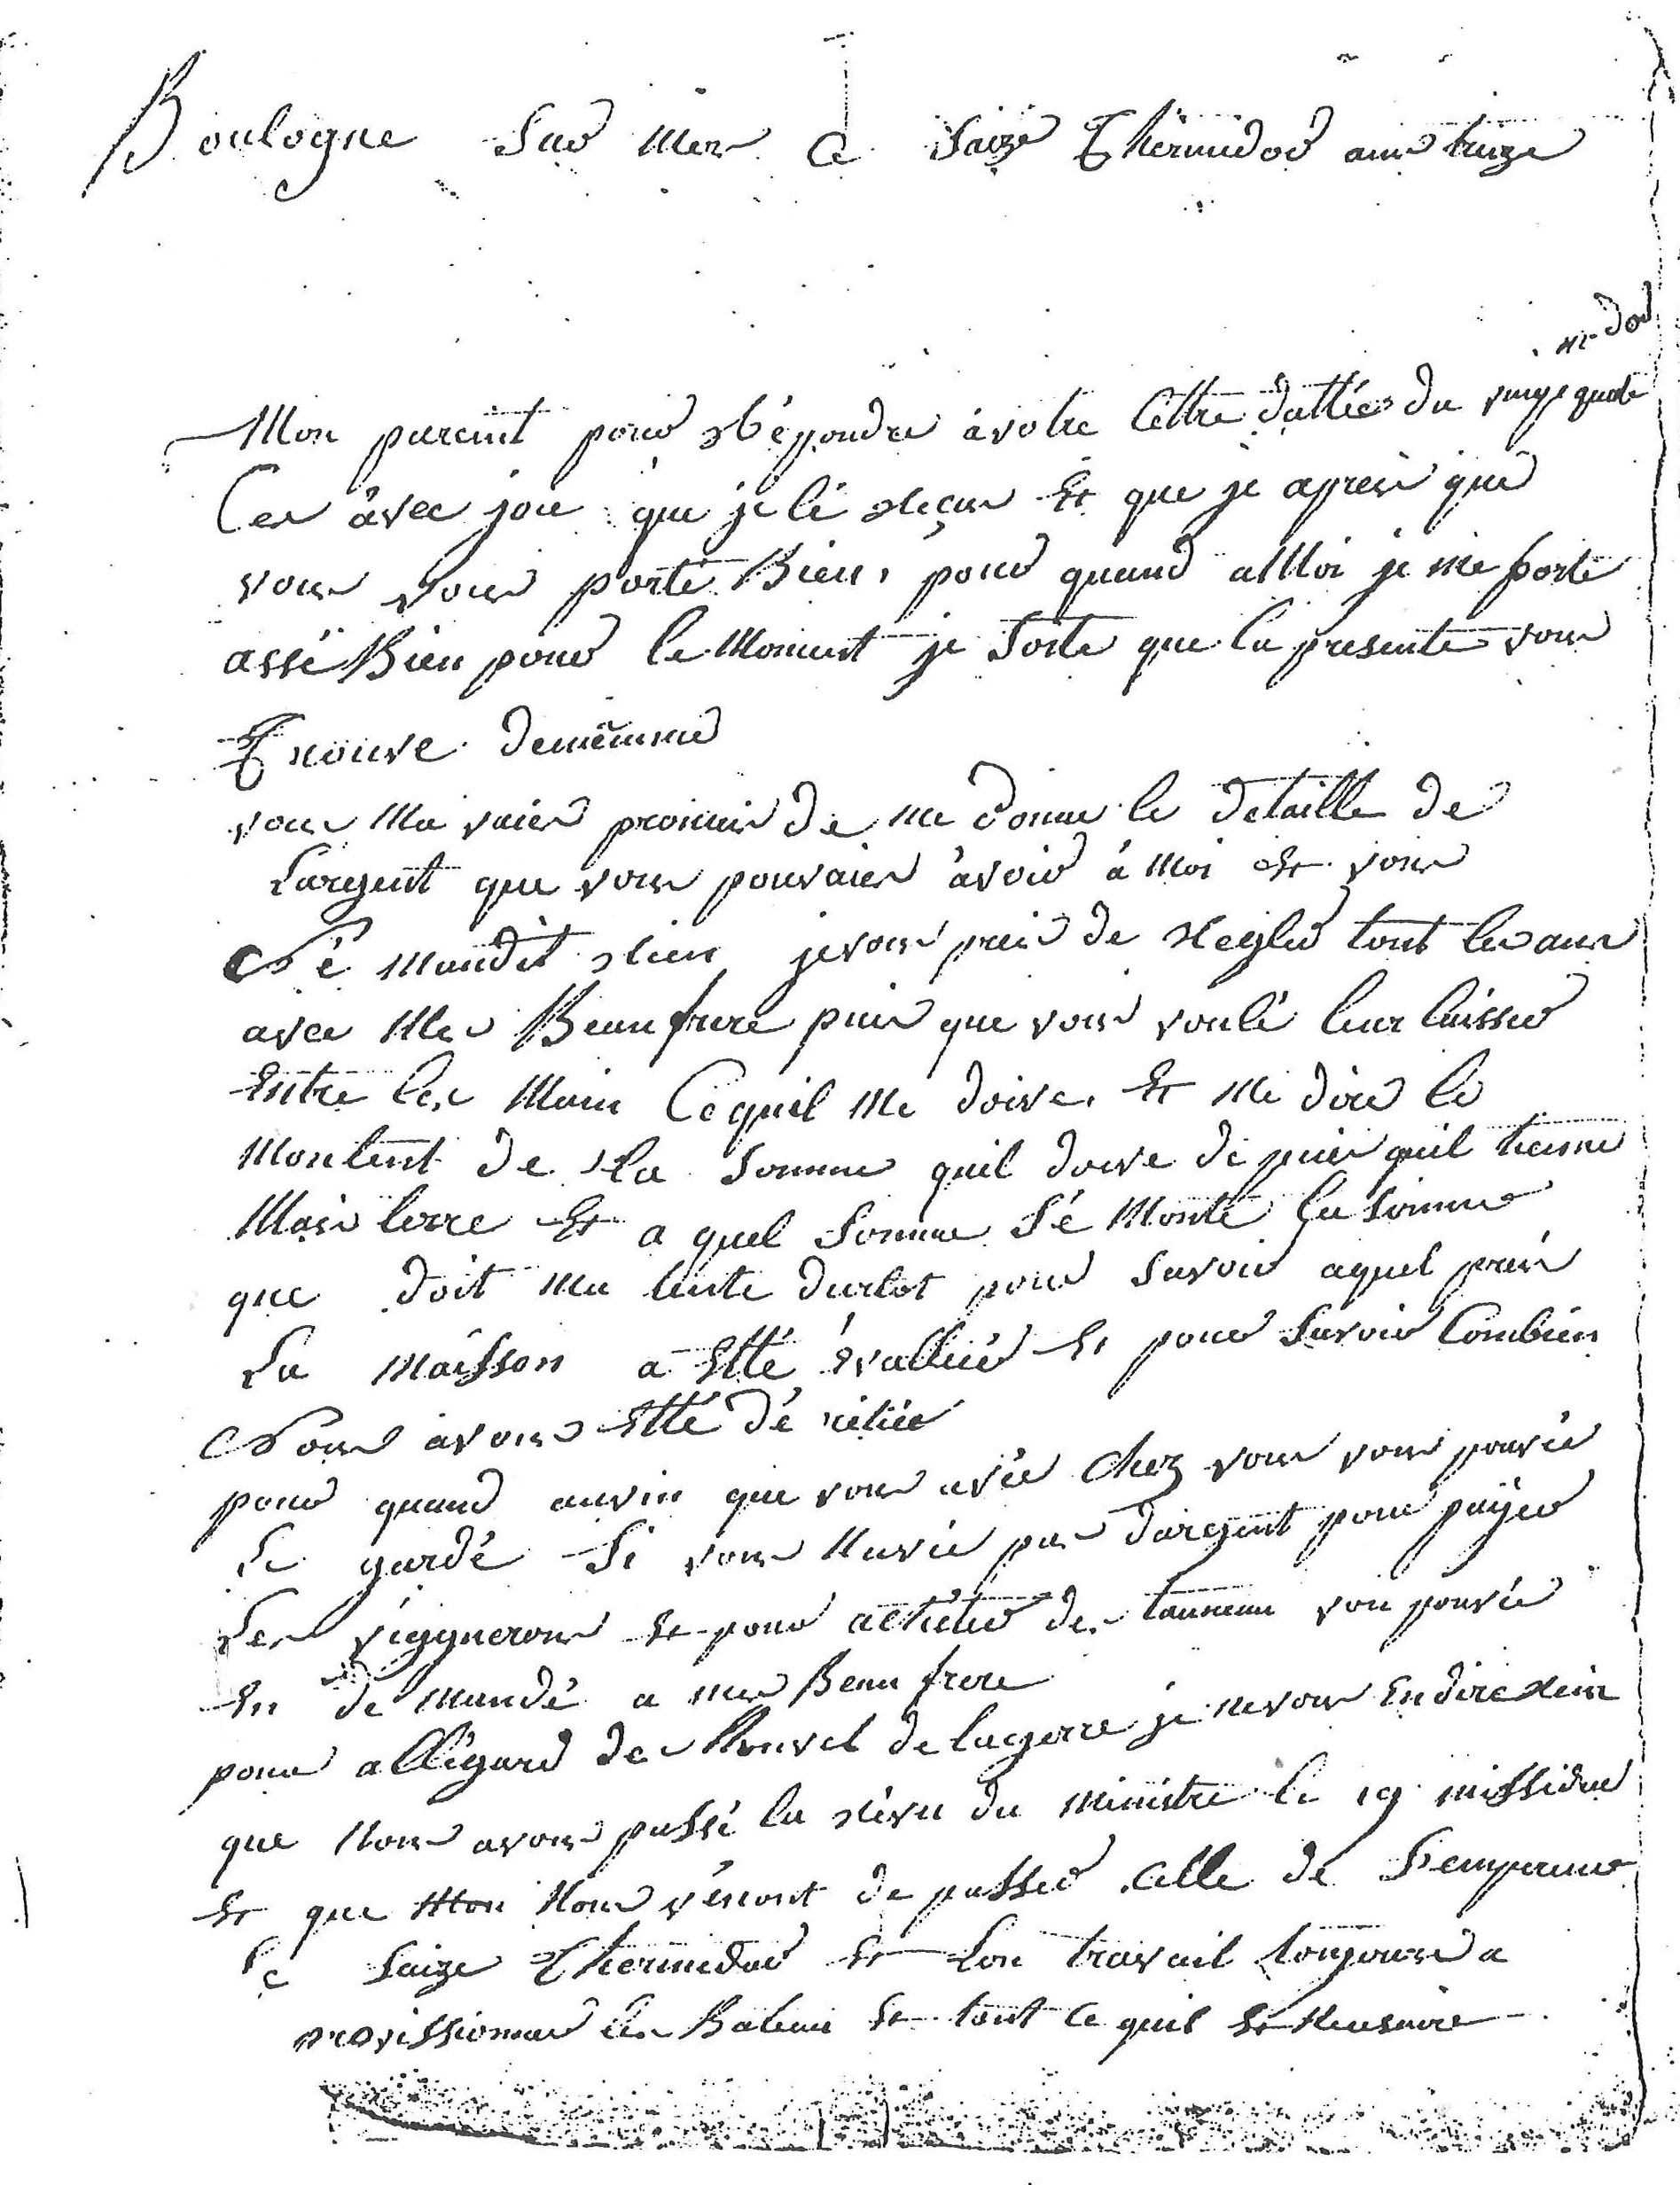 Boulogne Sur Mer Ce Saize Thérmidor ans treize
Mon pareint pour Répondre àvotre lettre dattée du vingt quatre
midor
Ces àvec joie que je lé Reçus Et que je aprein que
vous vous porté Bien, pour quand a Moi je me porte
assé Bien pour le Moment je Soite que la presente vous
Trouve demêmme
vous Ma vaiez promis de me Donner le détaille de
Largent que vous pouvaiez àvoir à Moi et vous
Né mandèt Rien jevous prie de Regler tout les ans
avec Mes Beau frere puis que vous voulé leur laisser
Entre les Main Cequil Me doive. Et Me dire le
Montent de La Somme quil doive de puis quil tienne
Mais terre Et a quel Somme Sé Monte La Somme
que doit Ma tente durlot pour Savoir aquel prix
La Maisson a Etté évalluée Et pour Savoir Combien
Nous avons Etté dé
pour quand auvin que vous avée Chez vous vous pouvée
Le gardé Si vous Navée pas dargent pour paÿer
Les viggnerons Et pour acheter des tauneau vous pouvée
En de Mandé a mes Beau frere
pour allégard des Nouvel de lagerre je nevous Endire Rein
que Nous avons passé la Révu du ministre le 19 missidor
Et que Mon Nous vénont de passer celle de Lempereur
Le Saize Thermidor Et Lon travail toujours a
provissionner les Bateau Et tout ce quil Et Neusaire